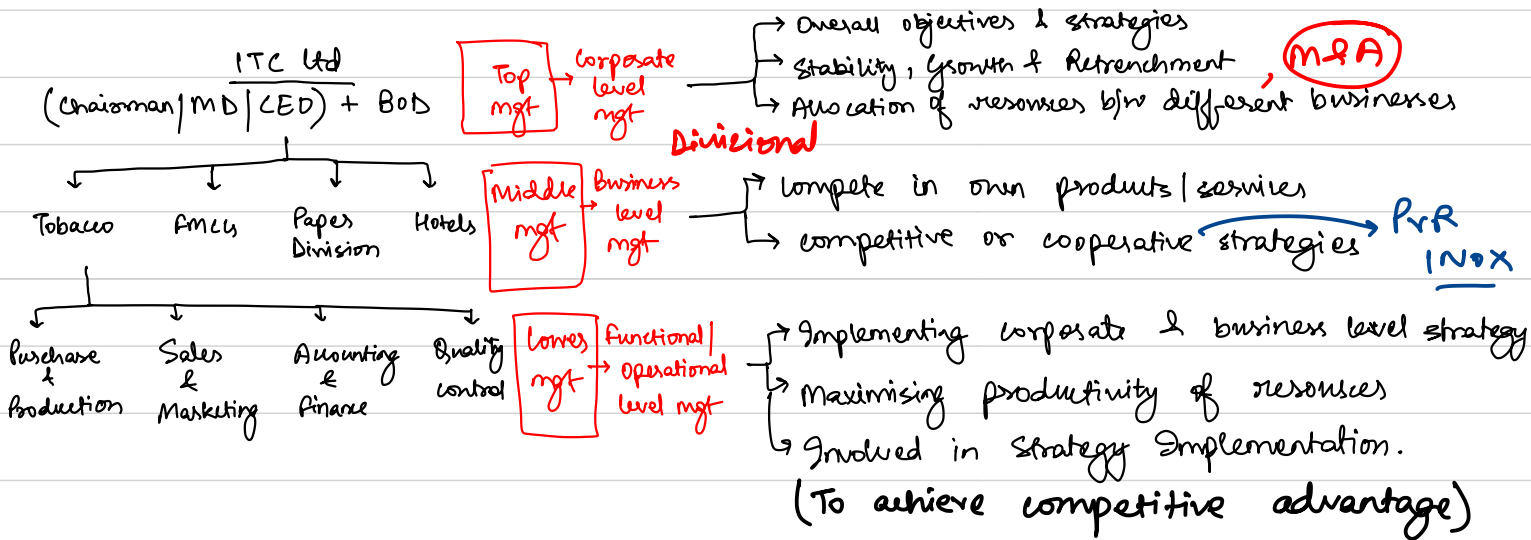 ITC Ltd
(Chairman/MD/CEO) + BOD
Top
mgt
Corporate
level
mgt
Overall objectives & strategies
Stability, Growth & Retrenchment, M&A
Allocation of resources b/w different businesses
Divisional
Tobacco
FMCG
Paper
Division
Hotels
Middle
mgt
Business
level
mgt
Compete in own products/services
competitive or cooperative strategies
PVR
INOX
Purchase
&
Production
Sales
&
Marketing
Accounting
&
Finance
Quality
control
Lower
mgt
Functional/
operational
level mgt
Implementing corporate & business level strategy
Maximising productivity of resources
Involved in strategy Implementation.
(To achieve competitive advantage)